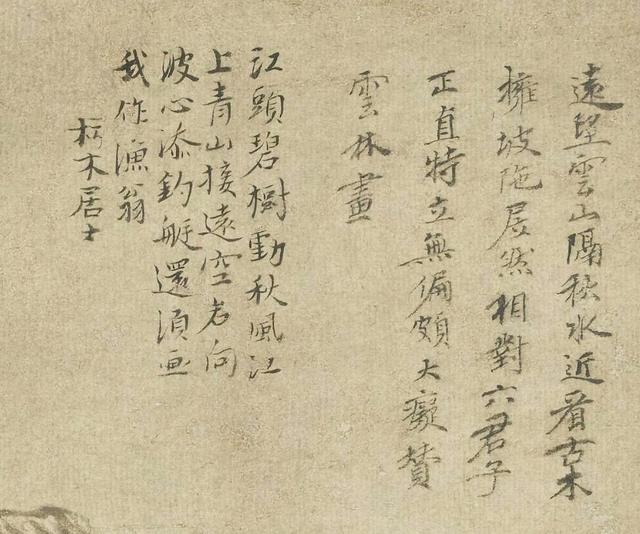 遠望雲山隔秋水近看古木
擁坡陁居然相對六君子
正直特立無偏頗大癡贊
雲林畫
江頭碧樹動秋風江
上青山接遠空若向
波心添釣艇還須画
我作漁翁
朽木居士